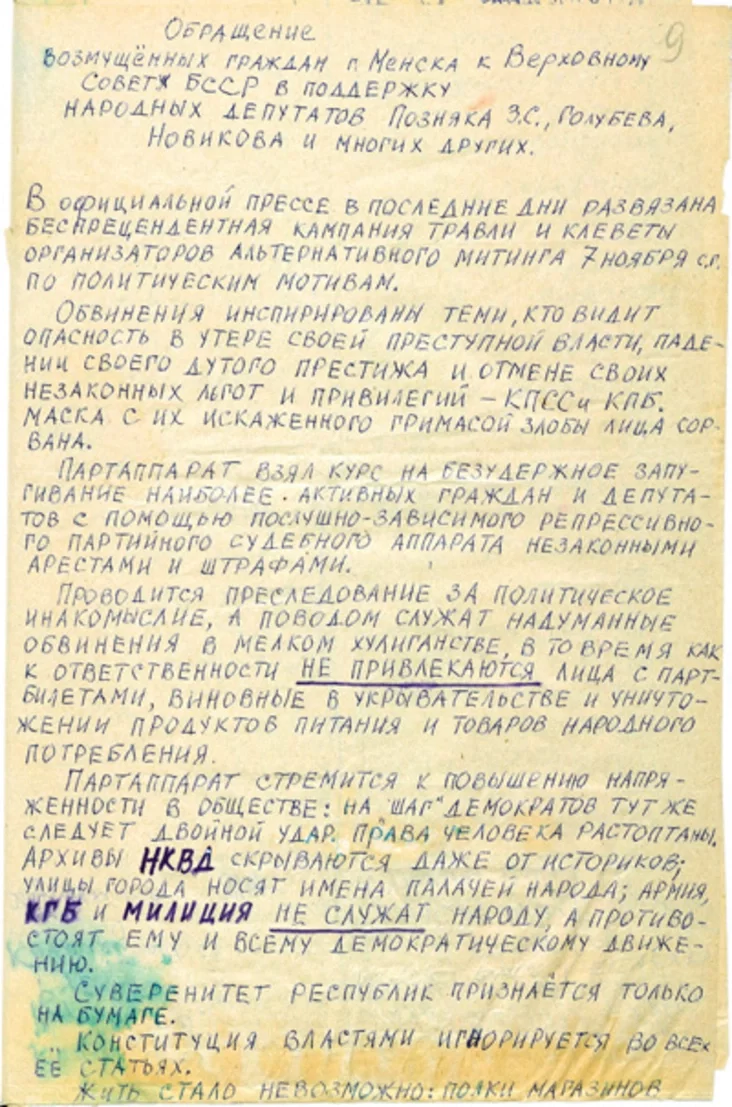 9
Обращение
возмущённых граждан г. Менска к Верховному
Совету БССР в поддержку
народных депутатов Позняка З.С., Голубева,
Новикова и многих других.
В официальной прессе в последние дни развязана
беспрецендентная кампания травли и клеветы
организаторов альтернативного митинга 7 ноября с.г.
по политическим мотивам.
Обвинения инспирированы теми, кто видит
опасность в утере своей преступной власти, паде-
нии своего дутого престижа и отмене своих
незаконных льгот и привилегий – КПСС и КПБ.
Маска с их искаженного гримасой злобы лица сор-
вана.
Партаппарат взял курс на безудержное запу-
гивание наиболее активных граждан и депута-
тов с помощью послушно-зависимого репрессивно-
го партийного судебного аппарата незаконными
арестами и штрафами.
Проводится преследование за политическое
инакомыслие, а поводом служат надуманные
обвинения в мелком хулиганстве, в то время как
к ответственности не привлекаются лица с парт-
билетами, виновные в укрывательстве и уничто-
жении продуктов питания и товаров народного
потребления.
Партаппарат стремится к повышению напря-
женности в обществе: на шаг демократов тут же
следует двойной удар. Права человека растоптаны.
Архивы НКВД скрываются даже от историков;
улицы города носят имена палачей народа; армия,
КГБ и милиция не служат народу, а противо-
стоят ему и всему демократическому движе-
нию.
Суверенитет республик признаётся только
на бумаге.
Конституция властями игнорируется во всех
её статьях.
Жить стало невозможно: полки магазинов